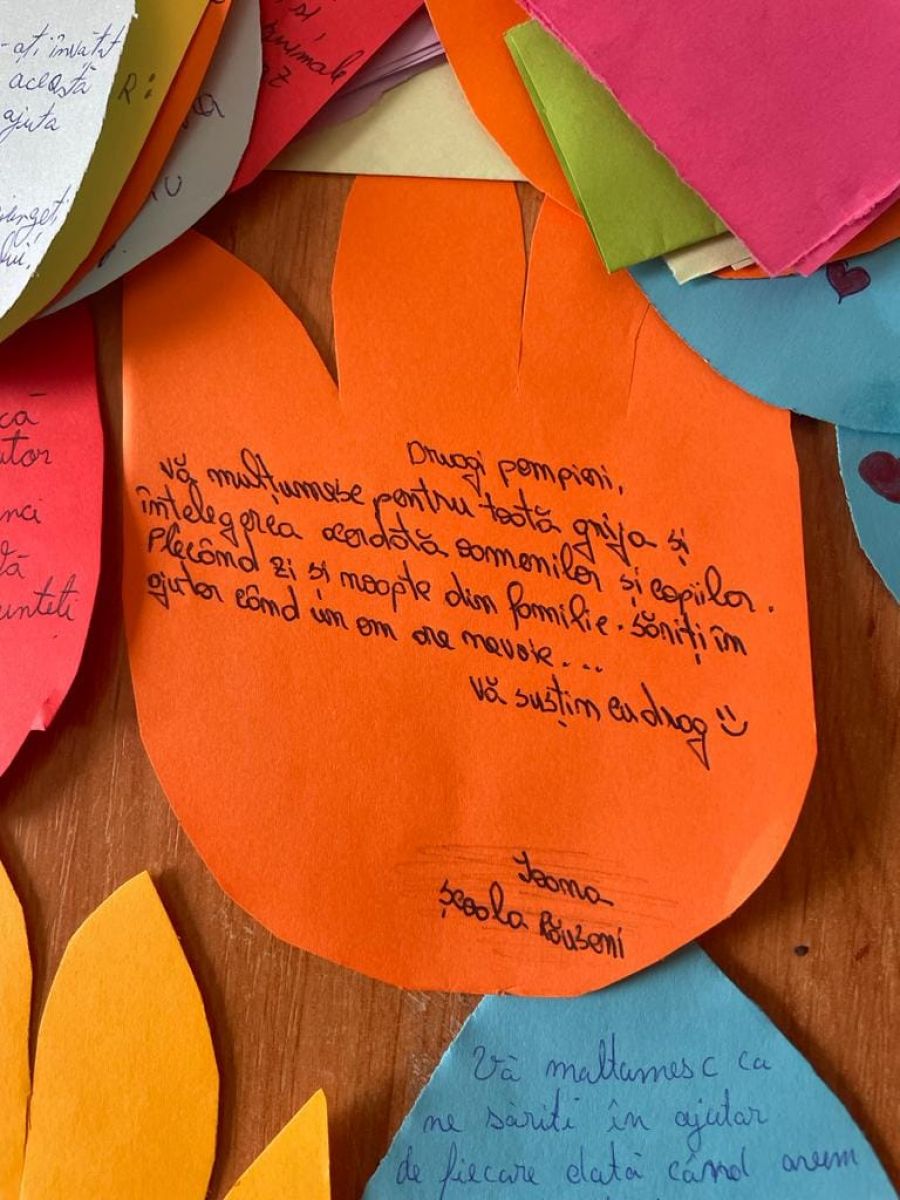 -ați învatat
această
ajuta
R:
și
animale
Drugi pompieri,
vă mulțumesc pentru toată grija și
întelegerea acordată oamenilor și copiilor.
Plecând zi și noapte din familie. Săriți în
ajutor când un om are nevoie...
Vă susțin cu drag
Ioana
școala Răuseni
că
nci
Vă maltumesc ca
ne săriti în ajutar
de fiecare dată când avem